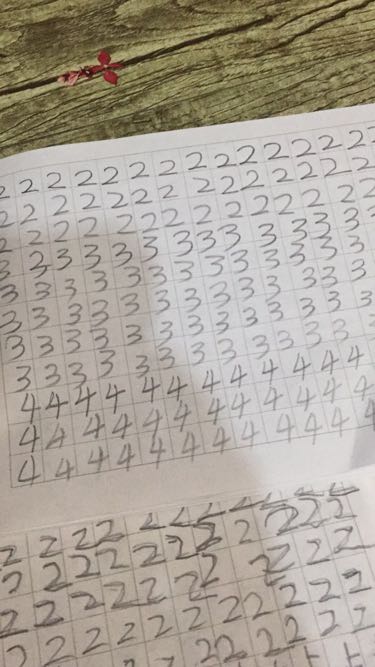 2 2 2 2 2 2 2 2 2 2 2 2 2 2
2 2 2 2 2 2 2 2 2 2 2 2 2 2
2 2 2 2 2 2 2 2 2 2 2 2 2 2
3 2 3 3 3 3 3 3 3 3 3 3 3 3
3 3 3 3 3 3 3 3 3 3 3 3 3
3 3 3 3 3 3 3 3 3 3 3 3 3
3 3 3 3 3 3 3 3 3 3 3 3 3
3 3 3 3 3 3 3 3 3 3 3 3 3
4 4 4 4 4 4 4 4 4 4 4 4
4 4 4 4 4 4 4 4 4 4 4 4
4 4 4 4 4 4 4 4 4 4 4 4
2 2 2 2 2 2 2 2 2 2 2 2
2 2 2 2 2 2 2 2 2 2 2
2 2 2 2 2 2 2 2 2 2 2
2 2 2 2 2 2 2 2 2 2 2 2
2 2 2 2 2